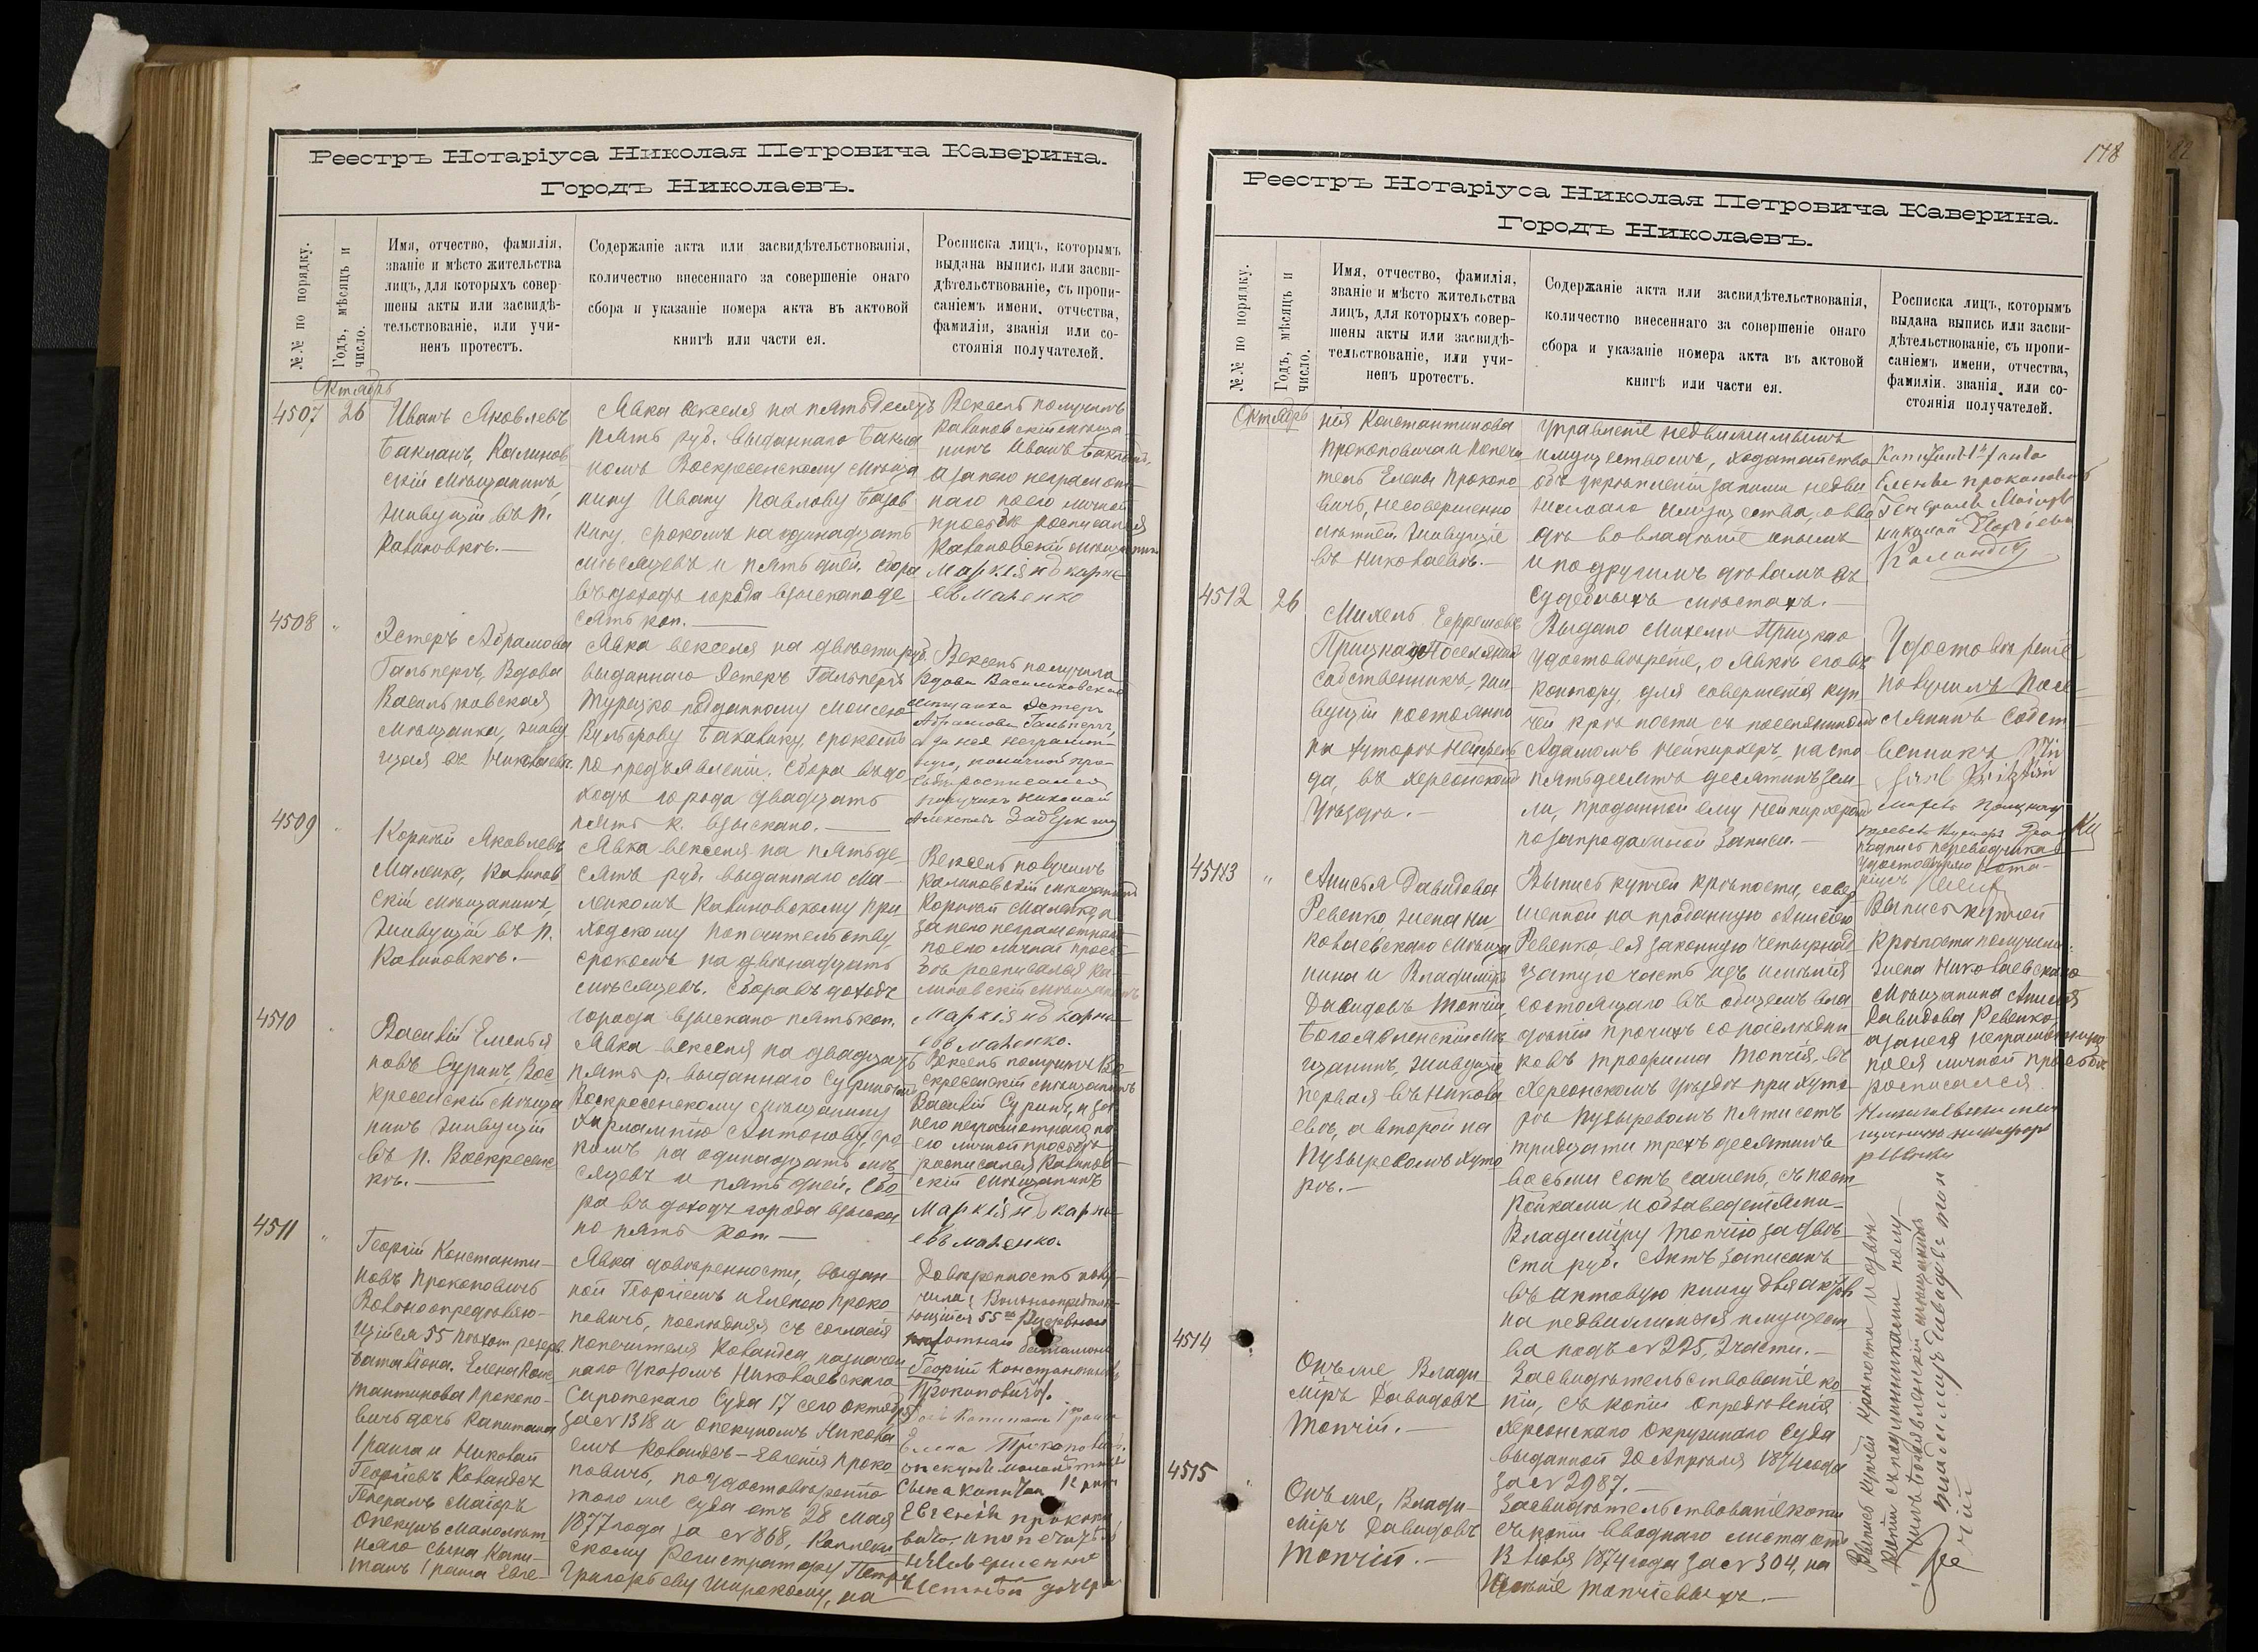 Реестръ Нотаріуса Николая Петровича Каверина.
Городъ Николаевъ.
№№ по порядку.
Годъ, мѣсяцъ и
число.
Имя, отчество, фамилія,
званіе и мѣсто жительства
лицъ, для которыхъ совер-
шены акты или засвидѣ-
тельствованіе, или учи-
ненъ протестъ.
Содержаніе акта или засвидѣтельствованія,
количество внесеннаго за совершеніе онаго
сбора и указаніе номера акта въ актовой
книгѣ или части ея.
Росписка лицъ, которымъ
выдана выпись или засви-
дѣтельствованіе, съ пропи-
саніемъ имени, отчества,
фамиліи, званія или со-
стоянія получателей.
Октябрь
4507
26
Иванъ Яковлевъ
Бакланъ, Калинов
скій мѣщанинъ,
живущій въ п.
Калиновкѣ.—
Явка векселя на пятьдесятъ
пять руб. выданнаго Бакла
номъ Воскресенскому мѣща
нину Ивану Павлову
срокомъ на одинадцать
мѣсяцевъ и пять дней. Сбора
въ доходъ города взыскано де
сять коп.—
Вексель получилъ
Калиновскій мѣща-
нинъ Иванъ Бакланъ,
а за него неграмот-
наго по его личной
просьбѣ росписался
Калиновскій мѣщанинъ
Маркіянъ карне
евъ Маленко
4508
"
Эстеръ Абрамова
Гальперъ, Вдова
Васильковская
мѣщанка, живу
щая въ Николаевѣ.
Явка векселя на двѣсти руб.
выданнаго Эстеръ Гальперъ
Турецко подданному Моисею
срокомъ
по предъявленіи. Сбора въ до
ходъ города двадцать
пять к. взыскано.—
Вексель получила
Вдова Васильковская
мѣщанка Эстеръ
Абрамова Гальперъ,
а за нея неграмот-
ную, по личной про-
сьбѣ росписался
поручикъ Николай
4509
"
Корнѣй Яковлевъ
Маленко, Калинов
скій мѣщанинъ,
живущій въ п.
Калиновкѣ.—
Явка векселя на пятьде-
сятъ руб. выданнаго Ма-
ленкомъ Калиновскому при
ходскому попечительству,
срокомъ на двѣнадцать
мѣсяцевъ. Сбора въ доходъ
города взыскано пять коп.
Вексель получилъ
Калиновскій мѣщанинъ
Корнѣй Маленко а
за него неграмотнаго
по его личной прось-
бѣ росписался Ка-
линовскій мѣщанинъ
Маркіянъ карни
евъ Маленко.
4510
"
Василій Емелья
новъ Суринъ, Вос
кресенскій мѣща
нинъ живущій
въ п. Воскресенс
кѣ.—
Явка векселя на двадцать
пять р. выданнаго Суринымъ
Воскресенскому мѣщанину
Харлампію Антонову, сро
комъ на одинадцать мѣ
сяцевъ и пять дней. Сбо
ра въ доходъ города взыска
но пять коп.—
Вексель получилъ Во
скресенскій мѣщанинъ
Василій Суринъ, а за
него неграмотнаго, по
его личной просьбѣ
росписался Калинов-
скій мѣщанинъ
Маркіянъ карни-
евъ Маленко.
4511
"
Георгій Константи-
новъ Прокоповичъ
Вольноопредѣляю-
щійся 55 пѣхот. резерв.
баталіона. Елена Конс
тантинова Прокопо-
вичъ дочь Капитана
1 ранга и Николай
Георгіевъ Коландсъ
Генералъ Маіоръ
Опекунъ малолѣт
няго сына Капи-
тана 1 ранга Евге-
Явка довѣренности, выдан-
ной Георгіемъ и Еленою Проко
повичъ, послѣдняя съ согласія
попечителя Коландса назначен
наго Указомъ Николаевскаго
Сиротскаго Суда 17 сего октября
за № 1318 и опекуномъ Никола
емъ Коландсъ – Евгенія Проко
повичъ, по удостовѣренію
того же Суда отъ 28 Мая
1877 года за № 868, Коллеж
скому Регистратору Петру
Григорьеву Широкому, на
Довѣренность полу-
чила: Вольноопредѣля-
ющійся 55го Резервнаго
пѣхотнаго баталіона
Георгій Константиновъ
Прокоповичъ.
Дочь Капитана 1го ранга
Елена Прокоповичъ.
опекунъ малолѣтняго
сына капитана 1го ранга
Евгенія прокопо
вичъ, и попечитель
несовершенно
лѣтней дочери
178
Реестръ Нотаріуса Николая Петровича Каверина.
Городъ Николаевъ.
№№ по порядку.
Годъ, мѣсяцъ и
число.
Имя, отчество, фамилія,
званіе и мѣсто жительства
лицъ, для которыхъ совер-
шены акты или засвидѣ-
тельствованіе, или учи-
ненъ протестъ.
Содержаніе акта или засвидѣтельствованія,
количество внесеннаго за совершеніе онаго
сбора и указаніе номера акта въ актовой
книгѣ или части ея.
Росписка лицъ, которымъ
выдана выпись или засви-
дѣтельствованіе, съ пропи-
саніемъ имени, отчества,
фамиліи, званія или со-
стоянія получателей.
Октябрь
нія Константинова
Прокоповича и попечи
тель Елены Прокопо
вичъ, несовершенно
лѣтней, живущіе
въ Николаевѣ.—
Управленіе недвижимымъ
имуществомъ, ходатайство
объ укрѣпленіи за ними недви
жимаго имущества, о вво
дѣ во владѣніе онымъ
и по другимъ дѣламъ въ
судебныхъ мѣстахъ.—
Капитана 1го ранга
Елены прокоповичъ
Генералъ Маіоръ
николай Георгіевъ
Коландсъ
4512
26
Михель Ефремовъ
Прицкау Поселянинъ
Собственникъ, жи-
вущій постоянно
на хуторѣ
да, въ Херсонскомъ
Уѣздѣ.—
Выдано Михелю Прицкао
удостовѣреніе, о явкѣ его въ
контору, для совершенія куп
чей крѣпости съ поселяниномъ
Адамомъ Нейкирхеръ, на сто
пятьдесятъ десятинъ зем
ли, проданной ему Нейкирхеромъ
по запродажной записи.—
Удостовѣреніе
получилъ Посе-
лянинъ Собст-
венникъ
Михель Прицкау
подпись переводчика
удостовѣряю Нота-
ріусъ
4513
"
Анисья Давидова
Ревенко, жена Ни
колаевскаго мѣща
нина и Владиміръ
Давидовъ Топчій,
Богоявленскій мѣ
щанинъ, живущіе
первая въ Никола
евѣ, а второй на
Пузыревомъ хуто
рѣ.—
Выпись купчей крѣпости, совер
шенной на проданную Анисьею
Ревенко, ея законную четырнад
цатую часть изъ имѣнія
состоящаго въ общемъ вла
дѣніи прочихъ сонаслѣдни
ковъ Трофима Топчія, въ
Херсонскомъ уѣздѣ при хуто
рѣ Пузыревомъ пяти сотъ
тридцати трехъ десятинъ
восьми сотъ сажень, съ пост
ройками и обзаведеніями—
Владиміру Топчію за двѣ-
сти руб. Актъ записанъ
въ актовую книгу для актовъ
на недвижимыя имущест
ва подъ № 225, 2 части.—
Выпись купчей
крѣпости получили:
жена Николаевскаго
мѣщанина Анисья
Давидова Ревенко
а за нея неграмотную
по ея личной просьбѣ
росписался
Николаевскій мѣ
щанинъ никифоръ
ревенко
4514
Онъ же, Влади-
міръ Давидовъ
Топчій.—
Засвидѣтельствованіе ко-
піи, съ копіи опредѣленія
Херсонскаго Окружнаго Суда
выданной 20 Апрѣля 1874 года
за № 2987.—
4515
"
Онъ же, Влади-
міръ Давидовъ
Топчій.—
Засвидѣтельствованіе копіи
съ копіи вводнаго листа отъ
13 Іюля 1874 года за № 304, на
имѣніе Топчіевыхъ.—
Выпись купчей крѣпости и двѣ
копіи съ подлинниками полу-
чилъ Богоявленскій мѣщанинъ
Владимиръ Давидовъ Топ
чій